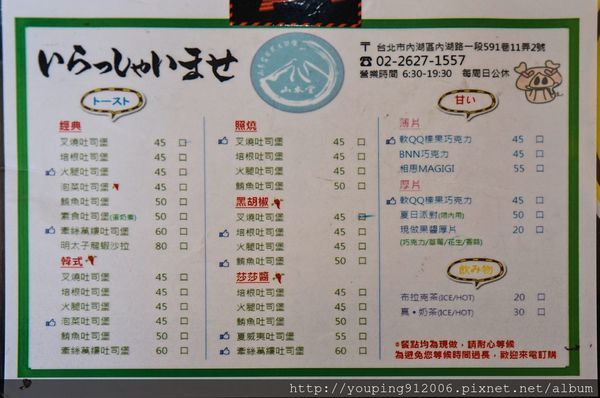 いらっしゃいませ
山本堂
〒 台北市內湖區內湖路一段591巷11弄2號
☎ 02-2627-1557
營業時間 6:30-19:30 每周日公休
トースト
經典
叉燒吐司堡 45 口
培根吐司堡 45 口
火腿吐司堡 45 口
泡菜吐司堡 45 口
鮪魚吐司堡 50 口
素食吐司堡(蛋奶素) 50 口
牽絲萬縷吐司堡 60 口
明太子龍蝦沙拉 80 口
韓式
叉燒吐司堡 45 口
培根吐司堡 45 口
火腿吐司堡 45 口
泡菜吐司堡 45 口
鮪魚吐司堡 50 口
牽絲萬縷吐司堡 60 口
照燒
叉燒吐司堡 45 口
培根吐司堡 45 口
火腿吐司堡 45 口
鮪魚吐司堡 50 口
黑胡椒
叉燒吐司堡 45 口
培根吐司堡 45 口
火腿吐司堡 45 口
鮪魚吐司堡 50 口
莎莎醬
培根吐司堡 45 口
火腿吐司堡 45 口
鮪魚吐司堡 50 口
夏威夷吐司堡 55 口
牽絲萬縷吐司堡 60 口
甘い
薄片
軟QQ榛果巧克力 45 口
BNN巧克力 45 口
相思MAGIGI 55 口
厚片
軟QQ榛果巧克力 45 口
夏日派對(限內用) 50 口
現做果醬厚片 20 口
(巧克力/草莓/花生/香蒜)
飲み物
布拉克茶(ICE/HOT) 20 口
真‧奶茶(ICE/HOT) 30 口
※餐點均為現做，請耐心等候
為避免您等候時間過長，歡迎來電訂購
http://youping912006.pixnet.net/album